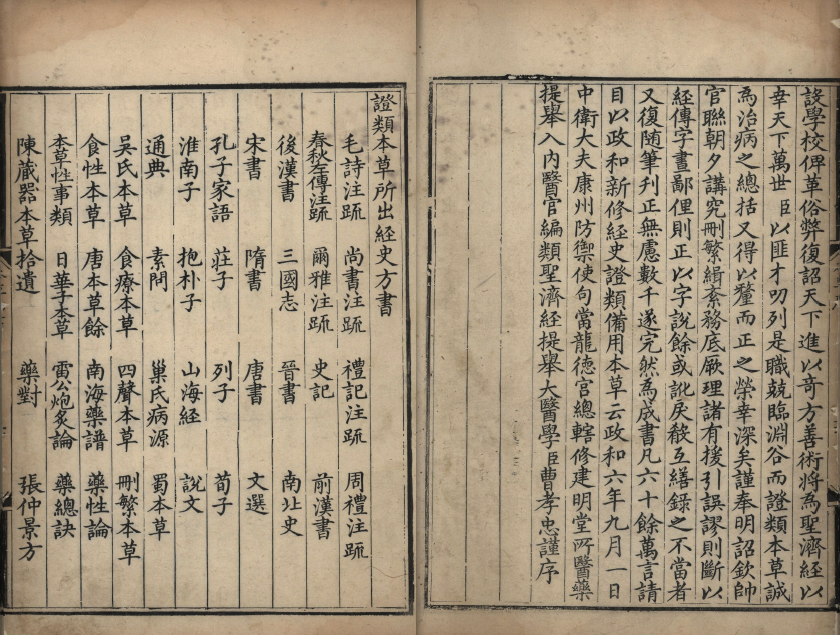 設學校俾革俗弊復詔天下進以竒方善術將為聖濟經以
幸天下萬世臣以匪才叨列是職兢臨淵谷而證類本草誠
為治病之總括又得以釐而正之榮幸深矣謹奉明詔欽帥
官聯朝夕講究刪繁緝紊務底厥理諸有援引誤謬則斷以
經傳字畫鄙俚則正以字說餘或訛戾殽互繕錄之不當者
又復隨筆刊正無慮數千遂完然為成書凡六十餘萬言請
目以政和新修經史證類備用本草云政和六年九月一日
中衛大夫康州防禦使句當龍德宮總轄修建明堂所醫藥
提舉入內醫官編類聖濟經提舉大醫學臣曹孝忠謹序
證類本草所出經史方書
毛詩注疏 尚書注疏 禮記注疏 周禮注疏
春秋左傳注疏 爾雅注疏 史記 前漢書
後漢書 三國志 晉書 南北史
宋書 隋書 唐書 文選
孔子家語 莊子 列子 荀子
淮南子 抱朴子 山海經 說文
通典 素問 巢氏病源 蜀本草
吳氏本草 食療本草 四聲本草 刪繁本草
食性本草 唐本草餘 南海藥譜 藥性論
本草性事類 日華子本草 雷公炮炙論 藥總訣
陳藏器本草拾遺 藥對 張仲景方